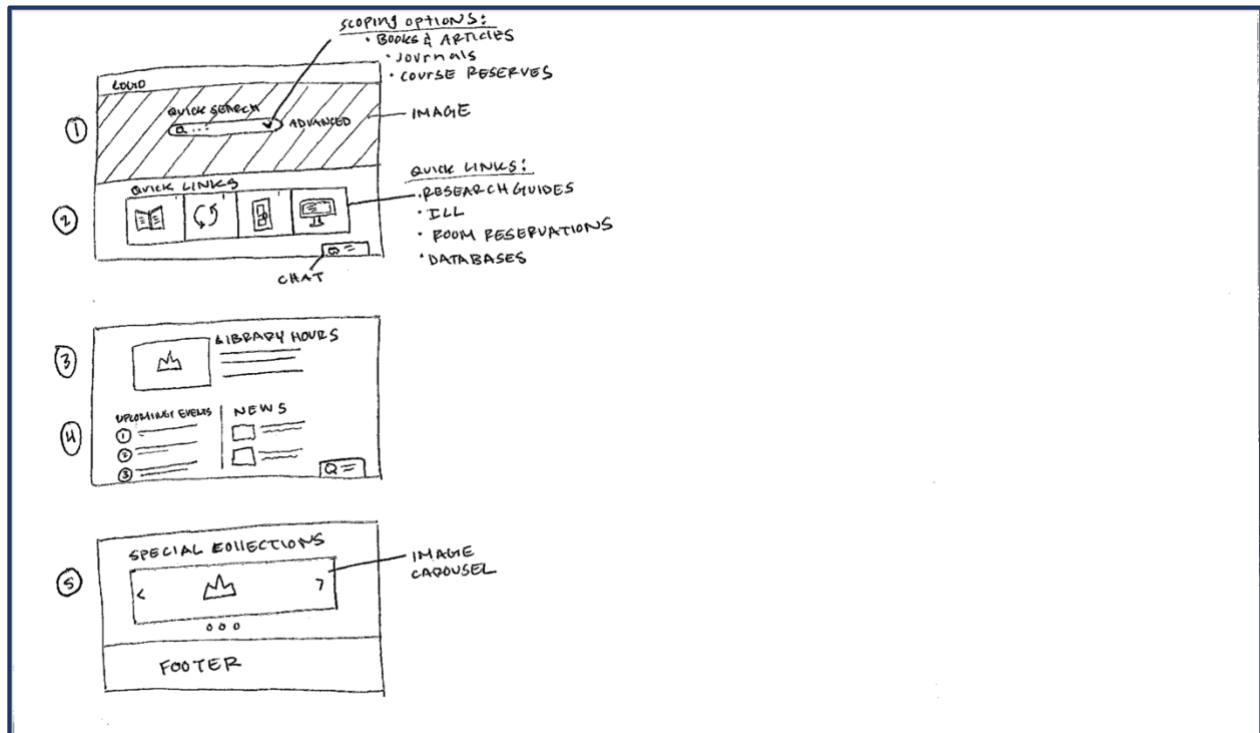 SCOPING OPTIONS:
• BOOKS & ARTICLES
• JOURNALS
• COURSE RESERVES
LOGO
①
QUICK SEARCH
ADVANCED
IMAGE
②
QUICK LINKS
QUICK LINKS:
• RESEARCH GUIDES
• ILL
• ROOM RESERVATIONS
• DATABASES
CHAT
③
LIBRARY HOURS
④
UPCOMING EVENTS
①
②
③
NEWS
⑤
SPECIAL COLLECTIONS
IMAGE
CAROUSEL
FOOTER